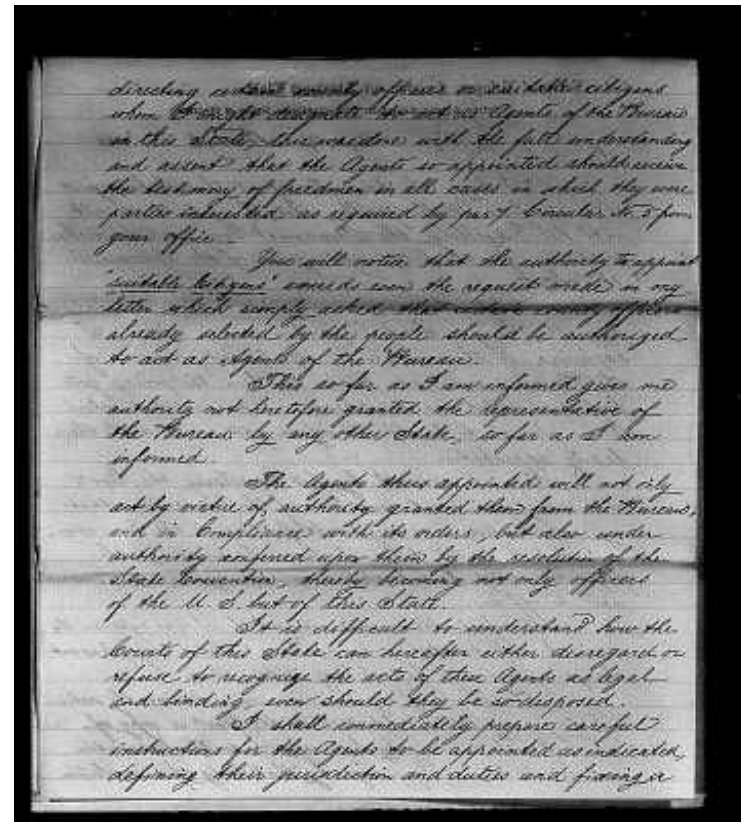 directing certain county officers or suitable citizens
whom I might designate to act as Agents of the Bureau
in this State, this was done with the full understanding
and assent that the Agents so appointed should receive
the testimony of freedmen in all cases in which they were
parties interested as required by par 7 Circular No. 5 from
your office.
You will notice that the authority to appoint
"suitable citizens" exceeds even the request made in my
letter which simply asked that certain county officers
already selected by the people should be authorized
to act as Agents of the Bureau.
This so far as I am informed gives me
authority not heretofore granted the representative of
the Bureau by any other State, so far as I am
informed.
The Agents thus appointed will not only
act by virtue of authority granted them from the Bureau,
and in Compliance with its orders, but also under
authority conferred upon them by the resolution of the
State Convention, thereby becoming not only officers
of the U. S. but of this State.
It is difficult to understand how the
Courts of this State can hereafter either disregard or
refuse to recognize the acts of these Agents as legal
and binding, even should they be so disposed.
I shall immediately prepare careful
instructions for the Agents to be appointed as indicated,
defining their jurisdiction and duties and fixing a